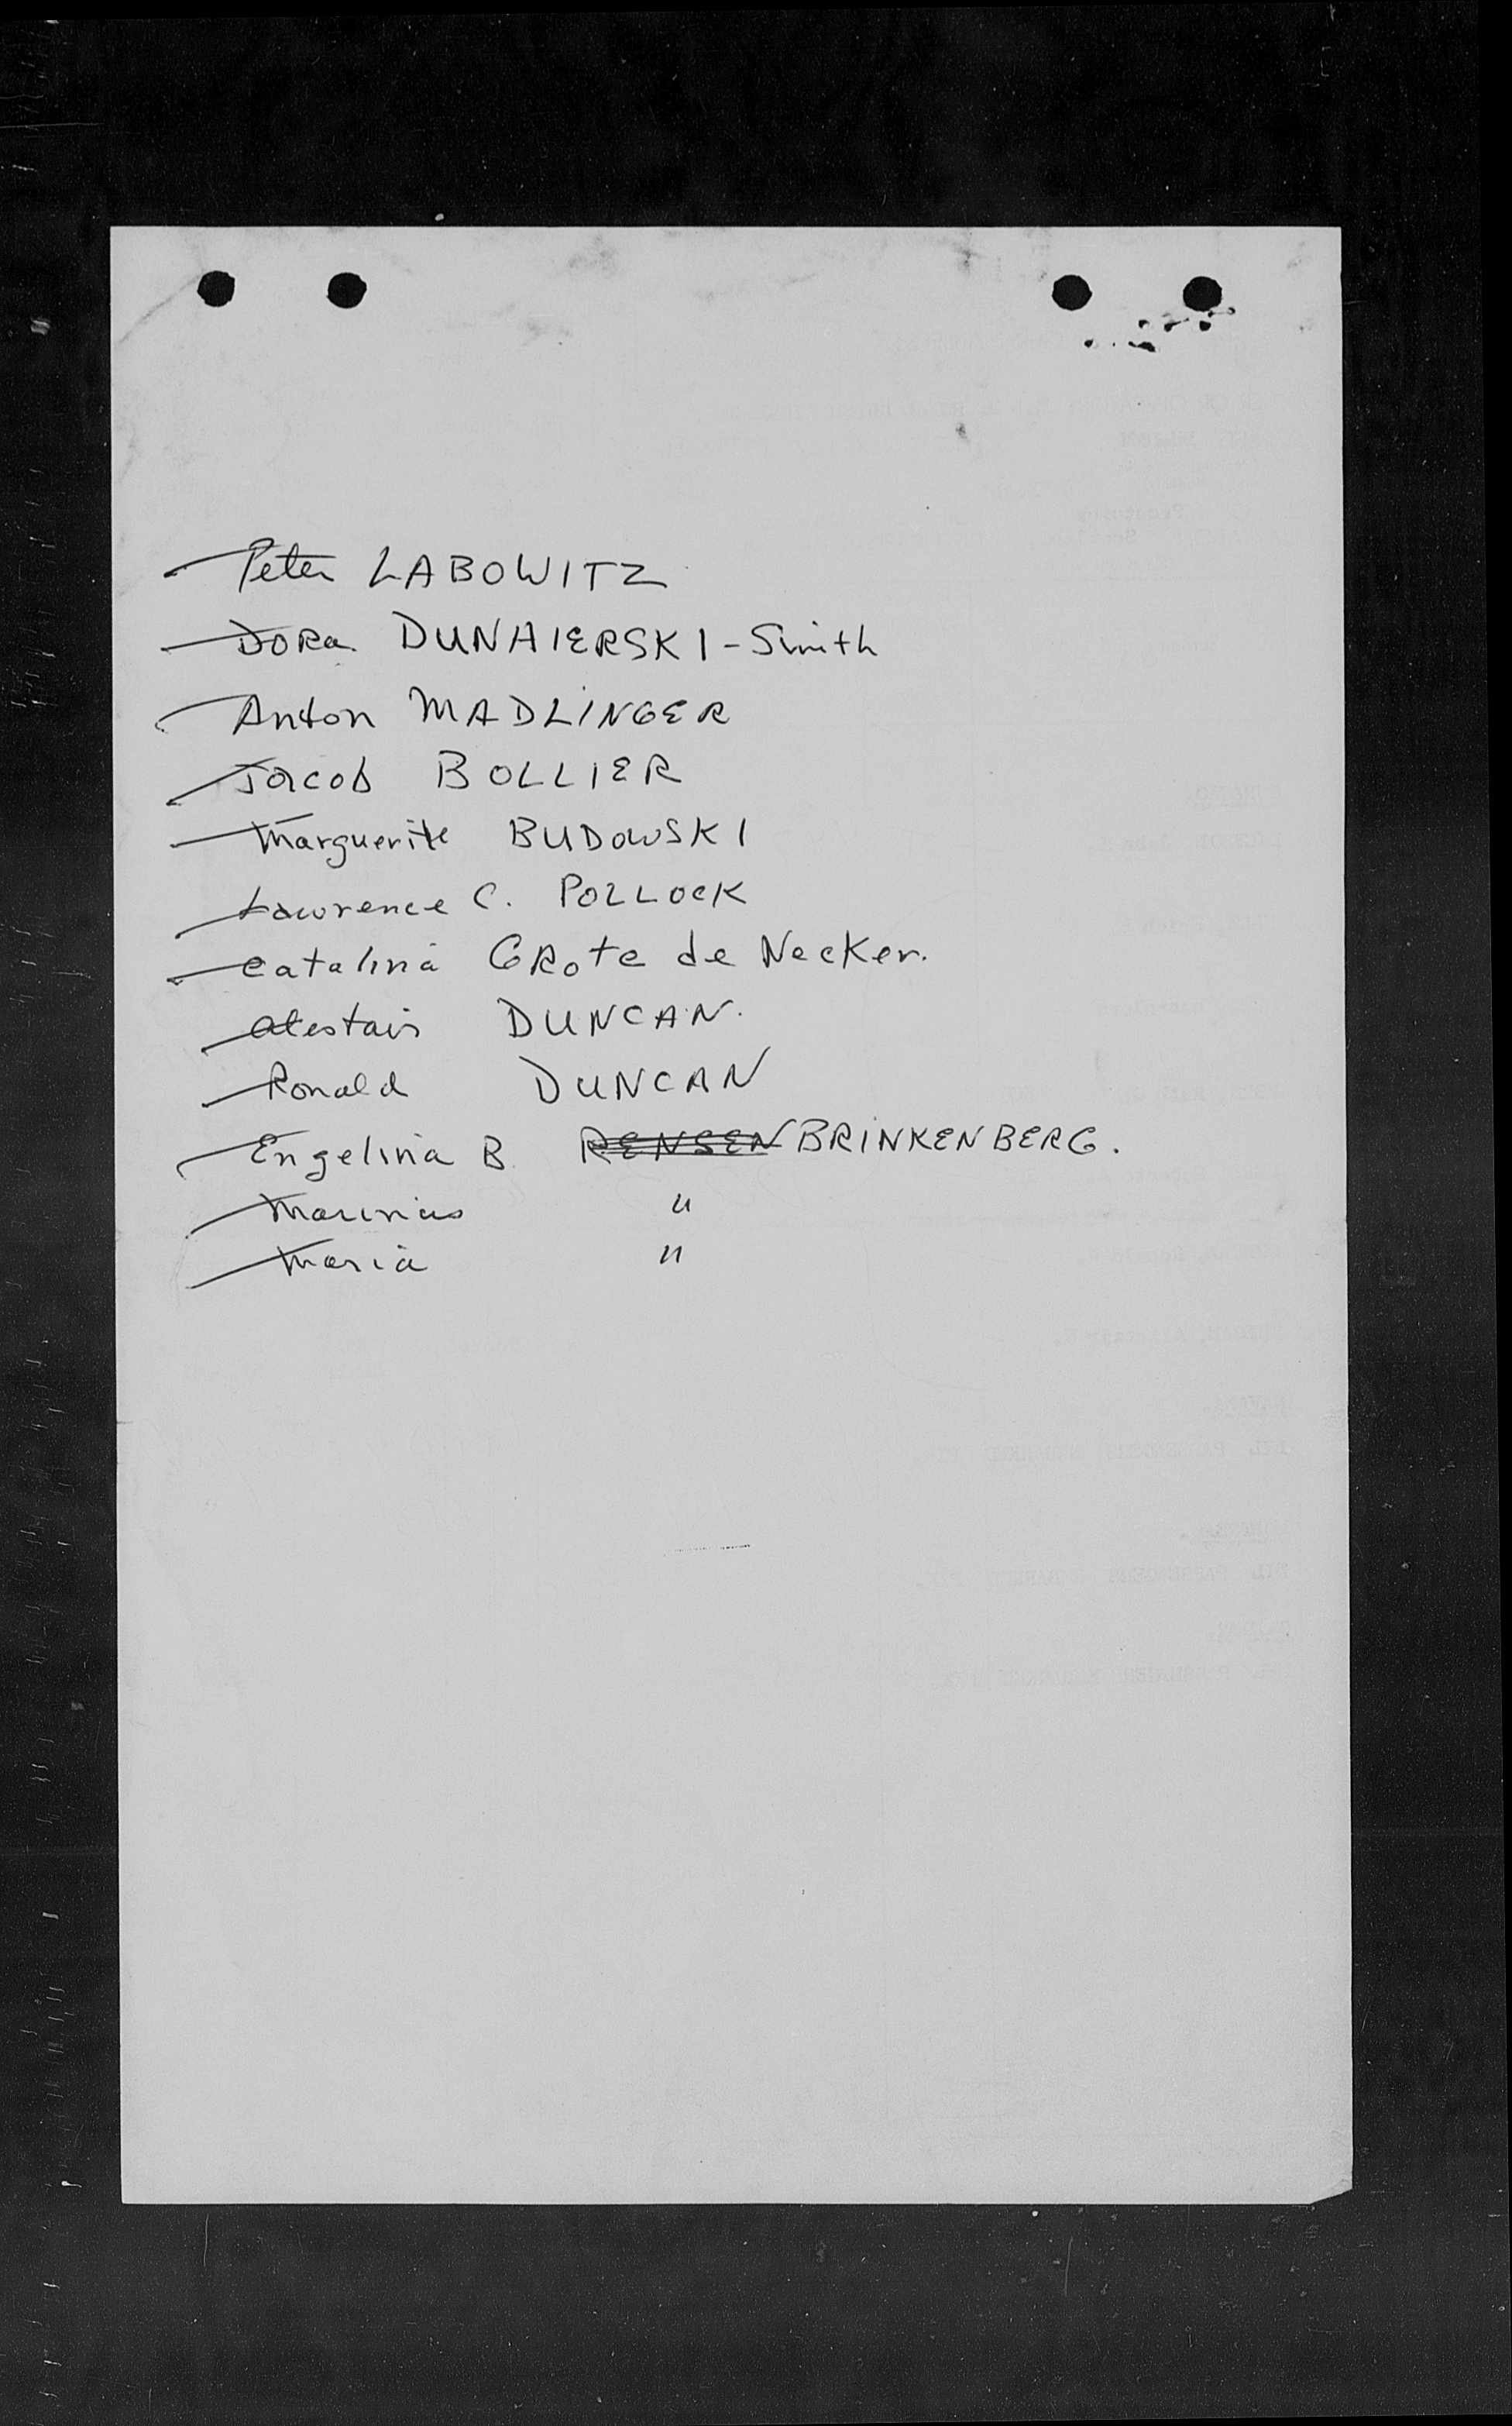 Peter LABOWITZ
Dora DUNAIERSKI-Smith
Anton MADLINGER
Jacob BOLLIER
Marguerite BUDOWSKI
Lawrence C. POLLOCK
Catalina GRote de Necker.
Alestair DUNCAN.
Ronald DUNCAN
Engelina B. RENSEN BRINKENBERG.
Marinus "
Maria "